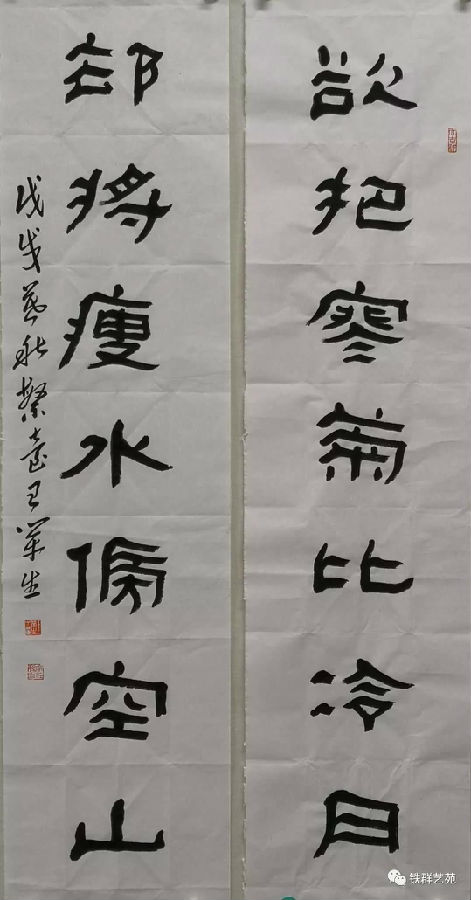 欲把寒菊比冷月
却将瘦水傍空山
戊戌暮秋
铁群艺苑